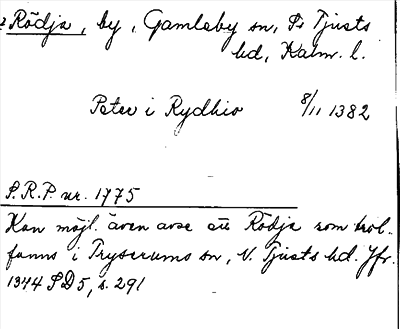 Rödja, by, Gamleby sn, S. Tjusts
hd, Kalm. l.
Peter i Rydhio 8/11 1382
S.R.P. nr. 1775
Kan möjl. även avse ett Rödja som trol.
fanns i Tryserums sn, N. Tjusts hd. Jfr.
1344 SD 5, s. 291